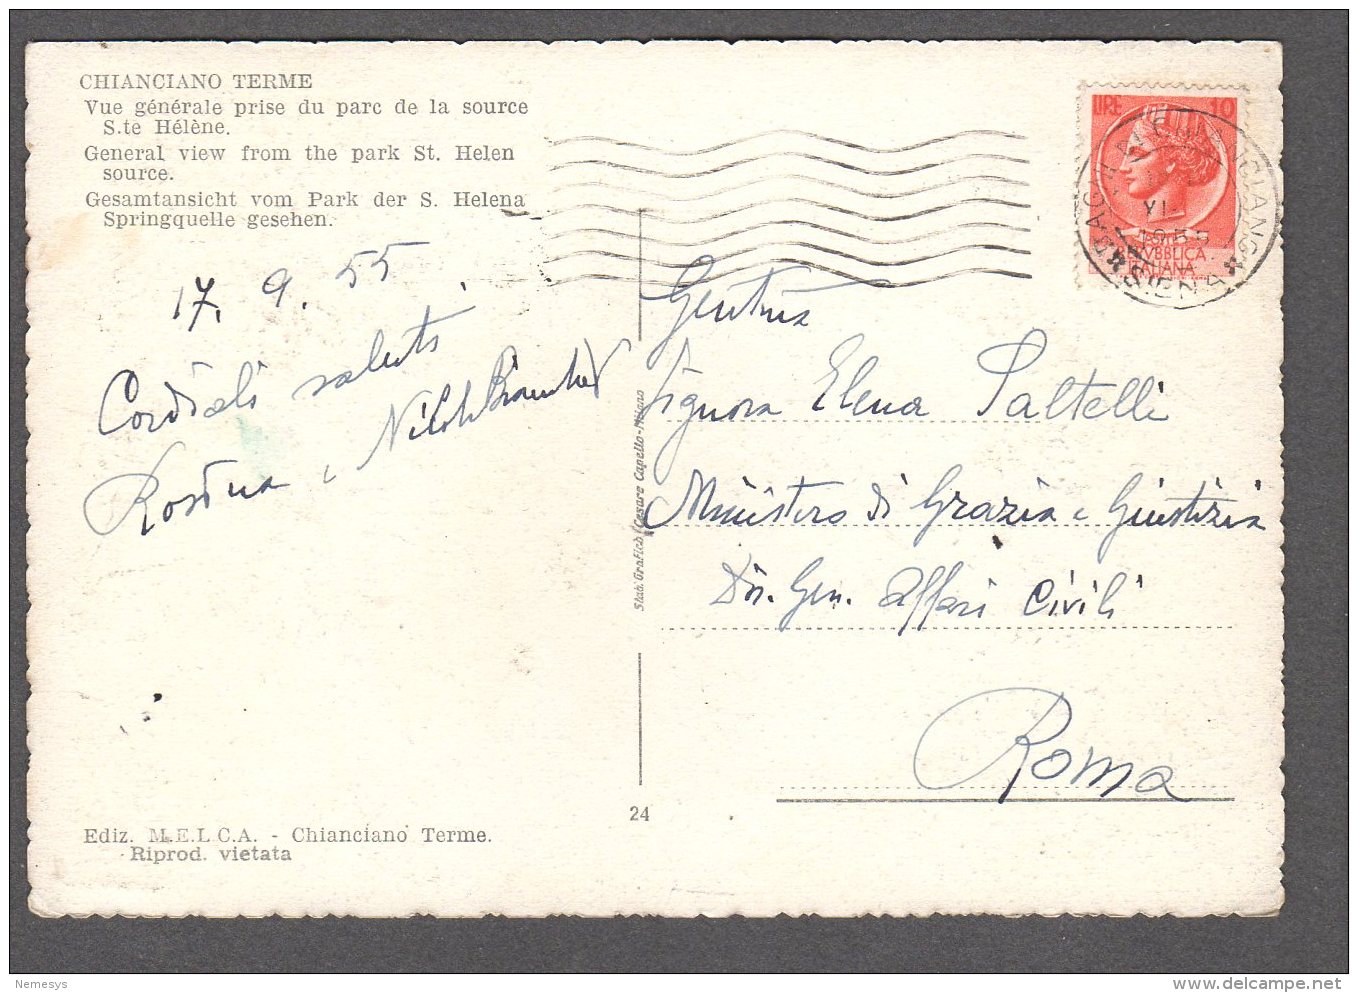 CHIANCIANO TERME
Vue générale prise du parc de la source
S.te Hélène.
General view from the park St. Helen
source.
Gesamtansicht vom Park der S. Helena
Springquelle gesehen.
17. 9. 55
Cordiali saluti
Rosina e
Ediz. M.E.L.C.A. - Chianciano Terme.
Riprod. vietata
Stab. Grafico Cesare Capello-Milano
24
LIRE 10
REPUBBLICA
ITALIANA
SIENA
Gent.ma
Signora Elena Saltelli
Ministero di Grazia e Giustizia
Dir. Gen. Affari Civili
Roma
Nemesys
www.delcampe.net